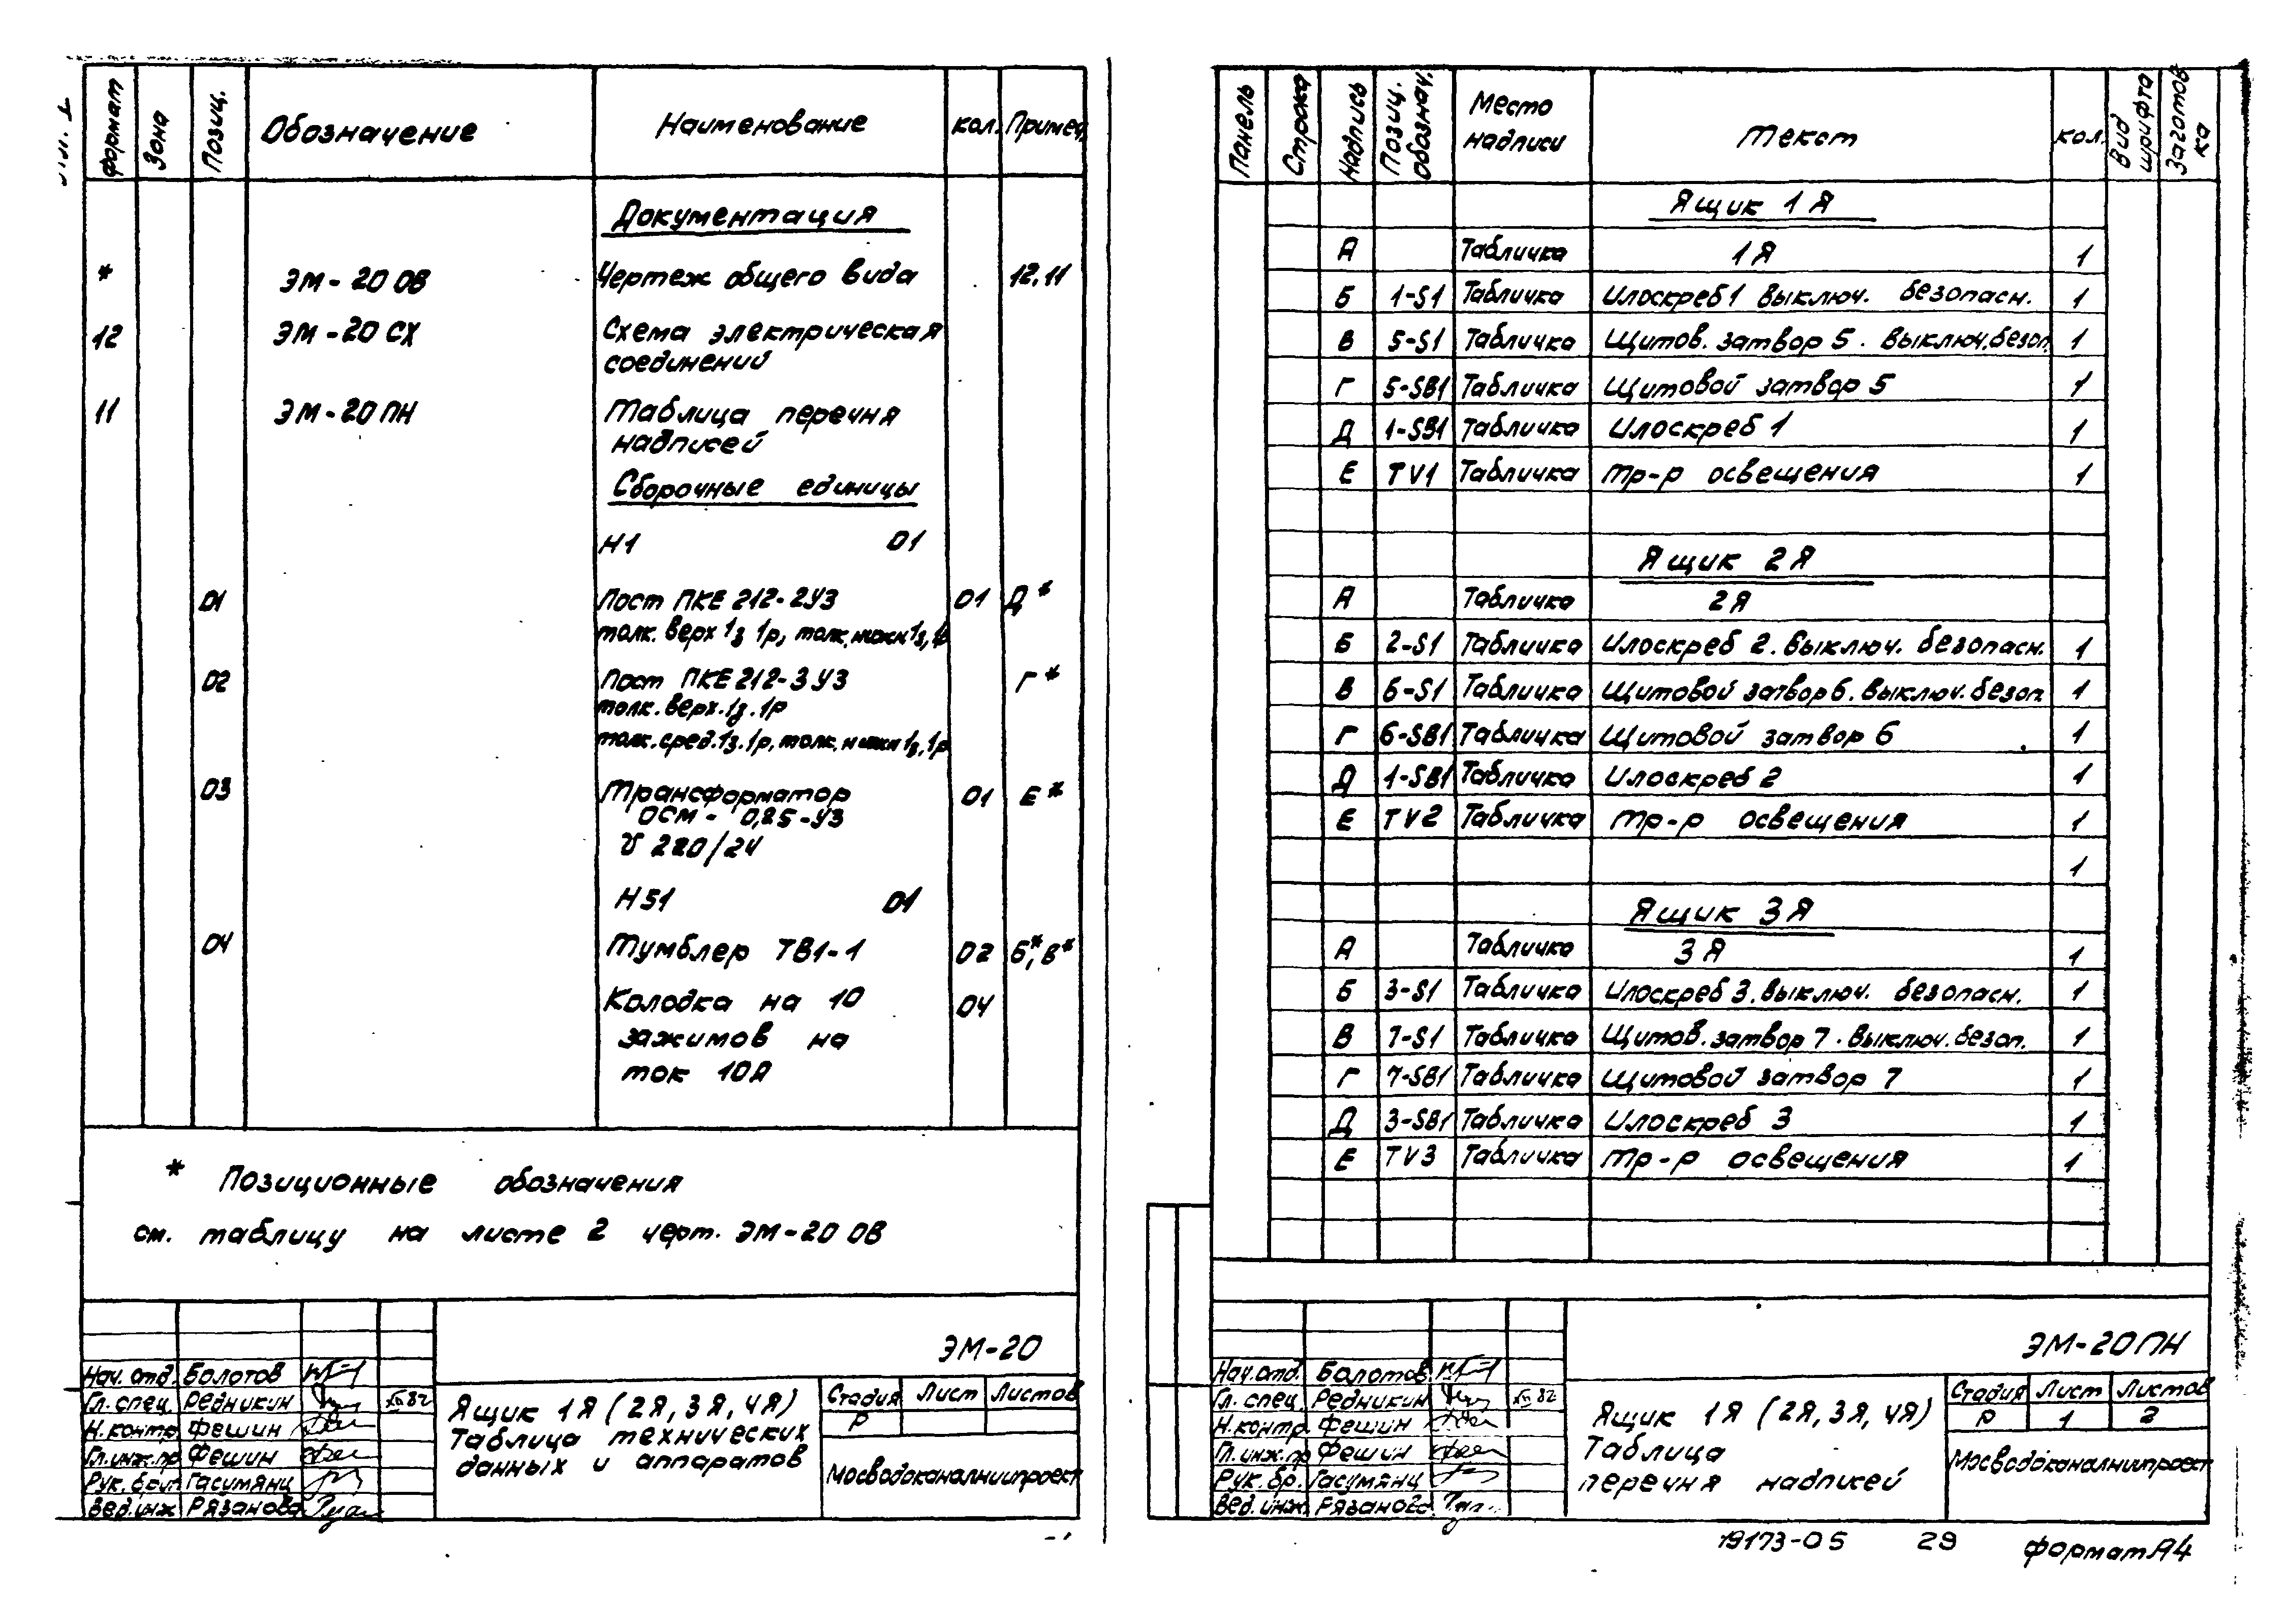 формат Зона Позиц. Обозначение Наименование кол. Примеч.
Документация
* ЭМ-20 ОВ Чертеж общего вида 12,11
12 ЭМ-20 СХ Схема электрическая
соединений
11 ЭМ-20 ПН Таблица перечня
надписей
Сборочные единицы
Н1 01
01 Пост ПКЕ 212-2У3 01 Д*
толк. верх 1з 1р, толк. нижн 1з, 1р
02 Пост ПКЕ 212-3У3 Г*
толк. верх. 1з. 1р
толк. сред. 1з. 1р, толк. нижн 1з, 1р
03 Трансформатор 01 Е*
ОСМ- 0,25-У3
220/24
Н51 01
04 Тумблер ТВ1-1 02 Б*, В*
Колодка на 10 04
зажимов на
ток 10А
* Позиционные обозначения
см. таблицу на листе 2 черт. ЭМ-20 ОВ
ЭМ-20
Нач. отд. Болотов
Гл. спец. Редникин XII 82
Н. контр Фешин
Гл. инж. пр Фешин
Рук. бриг Гасумянц
Вед. инж Рязанова
Ящик 1Я (2Я, 3Я, 4Я)
Таблица технических
данных и аппаратов
Стадия Лист Листов
Р
Мосводоканалниипроект
Панель Строка Надпись Позиц. обознач. Место надписи Текст кол. Вид шрифта Заготовка
Ящик 1Я
А Табличка 1Я 1
Б 1-S1 Табличка Илоскреб 1 выключ. безопасн. 1
В 5-S1 Табличка Щитов. затвор 5. выключ. безоп. 1
Г 5-SB1 Табличка Щитовой затвор 5 1
Д 1-SB1 Табличка Илоскреб 1 1
Е TV1 Табличка Тр-р освещения 1
Ящик 2Я
А Табличка 2Я
Б 2-S1 Табличка Илоскреб 2. выключ. безопасн. 1
В 6-S1 Табличка Щитовой затвор 6. выключ. безоп. 1
Г 6-SB1 Табличка Щитовой затвор 6 1
Д 1-SB1 Табличка Илоскреб 2 1
Е TV2 Табличка Тр-р освещения 1
1
Ящик 3Я
А Табличка 3Я 1
Б 3-S1 Табличка Илоскреб 3. выключ. безопасн. 1
В 7-S1 Табличка Щитов. затвор 7. выключ. безоп. 1
Г 7-SB1 Табличка Щитовой затвор 7 1
Д 3-SB1 Табличка Илоскреб 3 1
Е TV3 Табличка Тр-р освещения 1
ЭМ-20ПН
Нач. отд. Болотов
Гл. спец. Редникин XII 82
Н. контр Фешин
Гл. инж. пр Фешин
Рук. бр. Гасумянц
Вед. инж. Рязанова
Ящик 1Я (2Я, 3Я, 4Я)
Таблица
перечня надписей
Стадия Лист Листов
Р 1 2
Мосводоканалниипроект
19173-05 29 формат А4